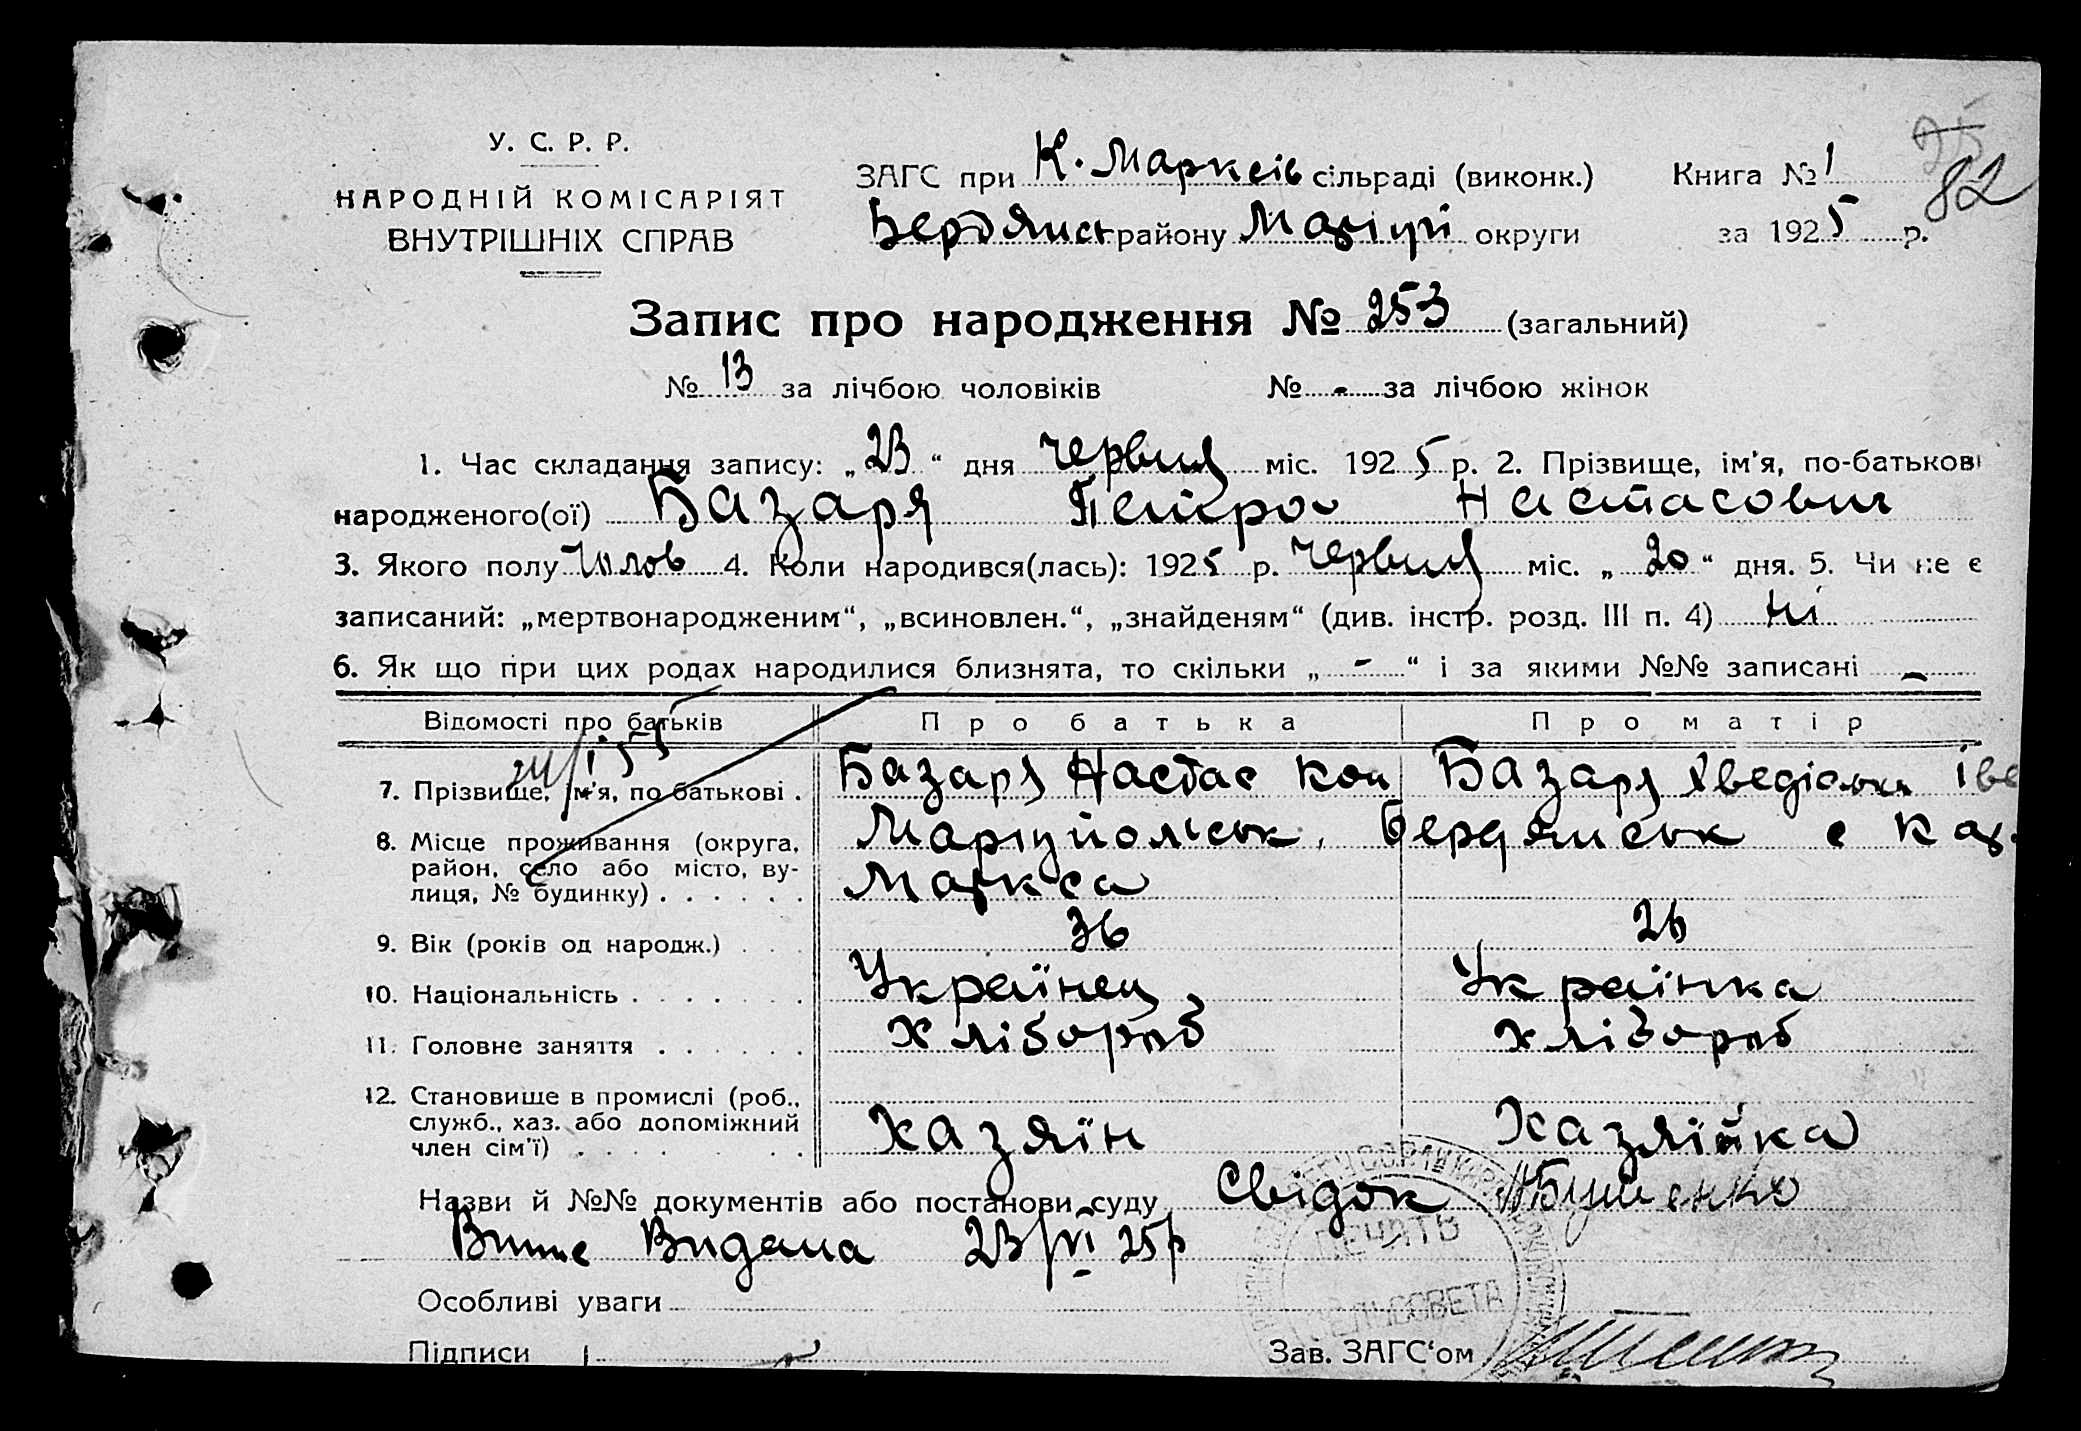 У. С. Р. Р.
НАРОДНІЙ КОМІСАРІЯТ
ВНУТРІШНІХ СПРАВ
ЗАГС при К. Марксів сільраді (виконк.) Книга № 1
82
Бердянськ району Маріуп округи за 1925 р.
Запис про народження № 253 (загальний)
№ 13 за лічбою чоловіків № - за лічбою жінок
1. Час складання запису: „23“ дня червня міс. 1925 р. 2. Прізвище, ім'я, по-батькові
народженого(ої) Базаря Петро Настасович
3. Якого полу Чолов 4. Коли народився(лась): 1925 р. червня міс. „20“ дня. 5. Чи не є
записаний: „мертвонародженим“, „всиновлен.“, „знайденям“ (див. інстр. розд. III п. 4) Ні
6. Як що при цих родах народилися близнята, то скільки „-“ і за якими №№ записані -
Відомості про батьків Про батька Про матір
7. Прізвище, ім'я, по батькові . Базаря Настас Кон Базаря Іве
8. Місце проживання (округа, район, село або місто, вулиця, № будинку) . . . . . . Маріупольськ, Бердянськ с Кар.
Маркса
9. Вік (років од народж.) . . . 36 26
10. Національність . . . . . . . Українец Українка
11. Головне заняття . . . . . . Хлібороб хлібороб
12. Становище в промислі (роб., служб., хаз. або допоміжний член сім'ї) . . . . . . . Хазяїн Хазяїйка
Назви й №№ документів або постанови суду Свідок Бушенко
Видана 23/VI 25р
ПЕЧАТЬ
СЕЛЬСОВЕТА
Особливі уваги
Підписи
Зав. ЗАГС'ом